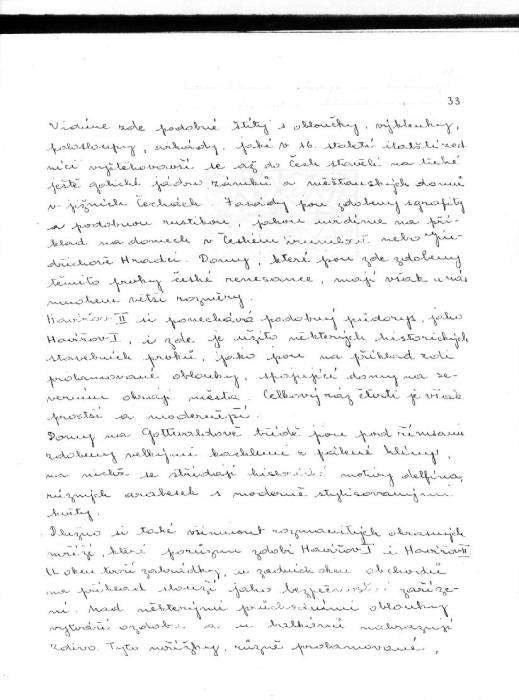 33
Vidíme zde podobné štíty s obloučky, výklenky,
polosloupy, arkády, jaké v 16. století italští zed
níci vystěhovavší se až do Čech stavěli na tiché
ještě gotické jádro zámků a měšťanských domů
v jižních Čechách. Fasády jsou zdobeny sgrafity
a podobnou rustikou, jakou vidíme na pří-
klad na domech v Českém Krumlově nebo Jin-
dřichově Hradci. Domy, které jsou zde zdobeny
těmito prvky české renesance, mají však u nás
mnohem větší rozměry.
Havířov II si ponechává podobný půdorys, jako
Havířov I, i zde je užito některých historických
stavebních prvků, jako jsou na příklad zde
prolamované oblouky, spojující domy na se-
verním okraji města. Celkový ráz čtvrti je však
prostší a modernější.
Domy na Gottwaldově třídě jsou pod římsami
zdobeny velkými kachlemi z pálené hlíny,
na nichž se střídají motivy delfína,
různých arabesek s moderně stylisovanými
květy.
Dlužno si také všimnout rozmanitých okrasných
mříží, které porůznu zdobí Havířov I i Havířov II
U oken tvoří zahrádky, u zadních oken obchodů
na příklad slouží jako bezpečnostní zaříze-
ní. Nad některými průchodními oblouky
vytváří ozdobu a u balkónů nahrazují
zdivo. Tyto mřížky, různě prolamované,